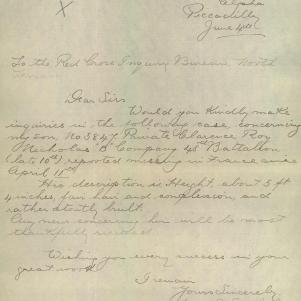 Alpha
Piccadilly
June 4th
To the Red Cross Inquiry Bureau North
Terrace
Dear Sirs
Would you kindly make
inquiries in the following case, concerning
my son, No 3847 Private Clarence Roy
Nicholas B Company 48th Battalion
(late 10th) reported missing in France since
April 11th
His description is Height, about 5 ft
4 inches, fair hair and complexion, and
rather stoutly built.
Any news concerning him will be most
thankfully received
Wishing you every success in your
great work
I remain
Yours Sincerely